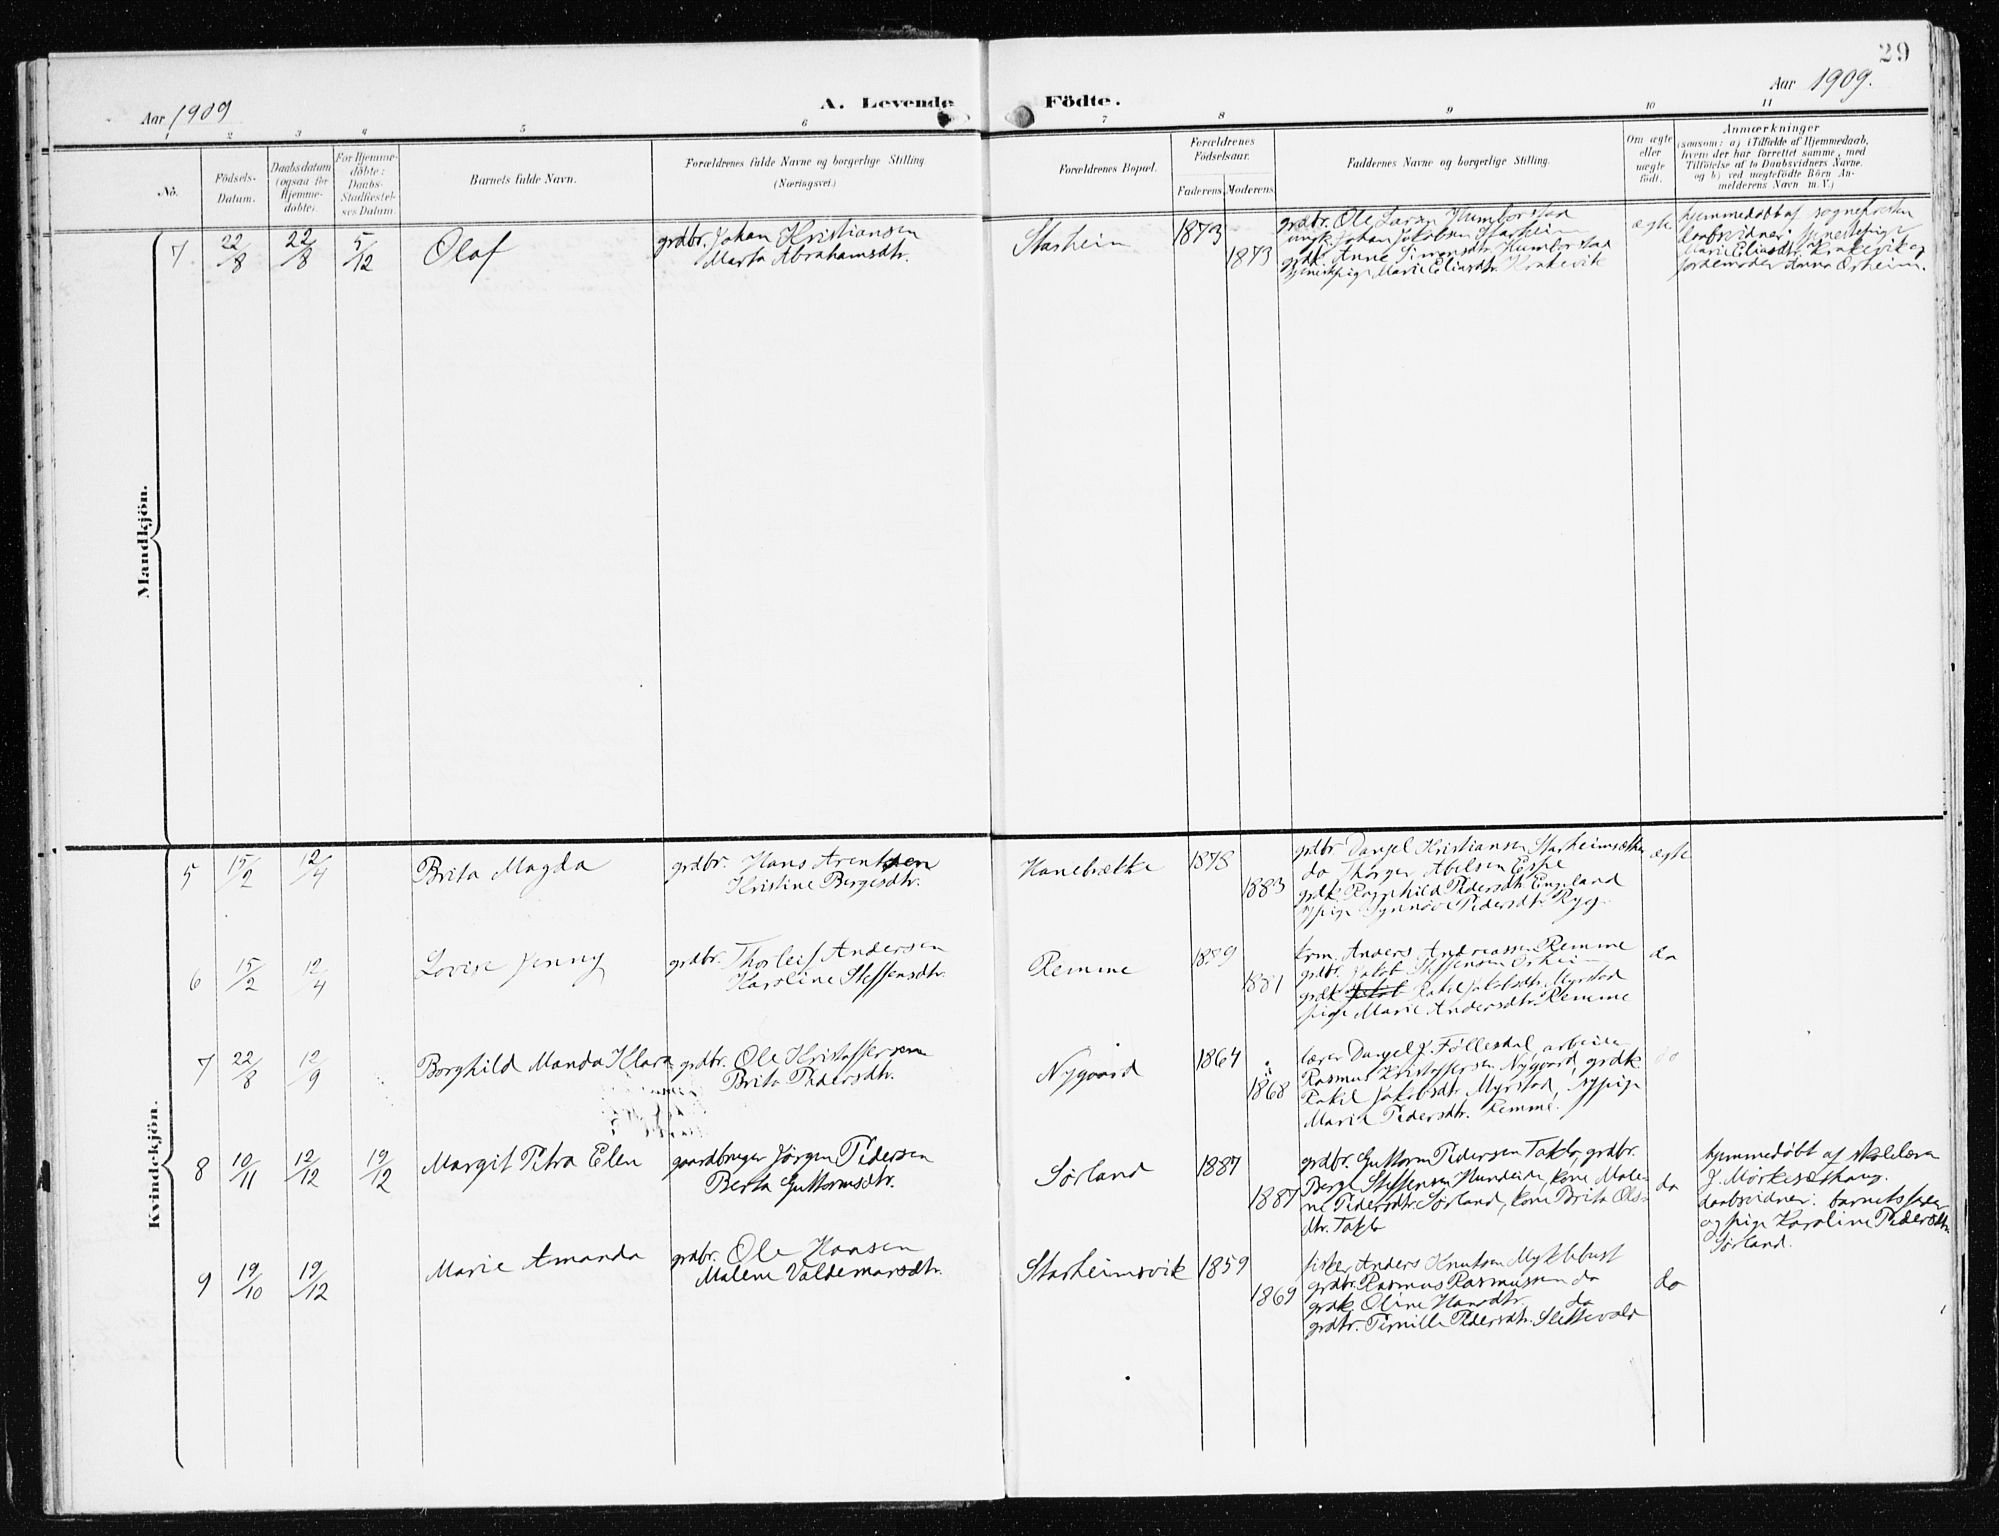 29
Aar 1909
A. Levende Födte.
Aar 1909.
1 2 3 4 5 6 7 8 9 10 11
No.
Födsels-Datum.
Daabsdatum (ogsaa for Hjemme-döbte).
For Hjemme-döbte: Daabs-Stadfæstel-ses Datum.
Barnets fulde Navn.
Forældrenes fulde Navne og borgerlige Stilling. (Næringsvei.)
Forældrenes Bopæl.
Forældrenes Födselsaar.
Faderens. Moderens.
Faddernes Navne og borgerlige Stilling.
Om ægte eller uægte födt.
Anmærkninger
(saasom: a) i Tilfælde af Hjemmedaab,
hvem der har forrettet samme, med
Tilföielse af to Daabsvidners Navne.
og b) ved uægtefödte Börn An-
melderens Navn m. V.)
Mandkjön.
7 22/8 22/8 5/12 Olaf
grdbr. Johan Kristiansen
Marta Abrahamsdtr.
Starheim 1873 1873
grdbr. Ole Laran Humborstad
ungk. Johan Jakobsen Starheim
grdk. Anne Simensdtr. Humborstad
tjenestpige Marie Eliasdtr. Krakevik
ægte
hjemmedøbt af sognepresten
daabsvidner: tjenestepige
Marie Eliasdtr. Krakevik og
jordemoder Anna Orheim.
Kvindekjön.
5 15/2 12/4 Brita Magda
grdbr. Hans Arentsen
Kristine Bergesdtr.
Hanebrække 1878 1883
grdbr Daniel Kristiansen Starheimsæther
do Thorger Abelsen Eske
grdk. Ragnhild Pedersdtr. Engeland
sypige Synnøve Pedersdtr. Ryg.
ægte
6 15/2 12/4 Lovise Jenny
grdbr. Thorleif Andersen
Karoline Steffensdtr.
Remme 1889 1881
krm. Anders Andreassen Remme
grdbr. Jakob Steffensen Orheim
grdk. Rakel Jakobsdtr. Myrstad
pige Marie Andersdtr. Remme
do
7 22/8 12/9 Borghild Manda Klara
grdbr. Ole Kristoffersen
Brita Pedersdtr.
Nygaard 1864 1868
lærer Daniel J. Føllesdal, arbeider
Rasmus Kristoffersen Nygaard, grdk.
Rakel Jakobsdtr. Myrstad, sypige
Marie Pedersdtr. Remme.
do
8 10/11 12/12 19/12 Margit Petra Elen
gaardbruger Jørgen Pedersen
Berta Guttormsdtr.
Sørland 1887 1887
grdbr. Guttorm Pedersen Taklo, grdbr.
Berge Steffensen Hundeide, kone Male-
ne Pedersdtr. Sørland, kone Brita Ols-
dtr. Taklo
do
hjemmedøbt af skolelærer
J. Mørkesæthaug.
daabsvidner: barnets far
og pige Karoline Pedersdtr.
Sørland.
9 19/10 19/12 Marie Amanda
grdbr. Ole Hansen
Malene Valdemarsdtr.
Starheimsvik 1859 1869
fisker Anders Knutsen Myklebust
grdbr. Rasmus Rasmussen do
grdk. Oline Hansdtr. do
grdbr. Pernille Pedersdtr. Slettevold
do